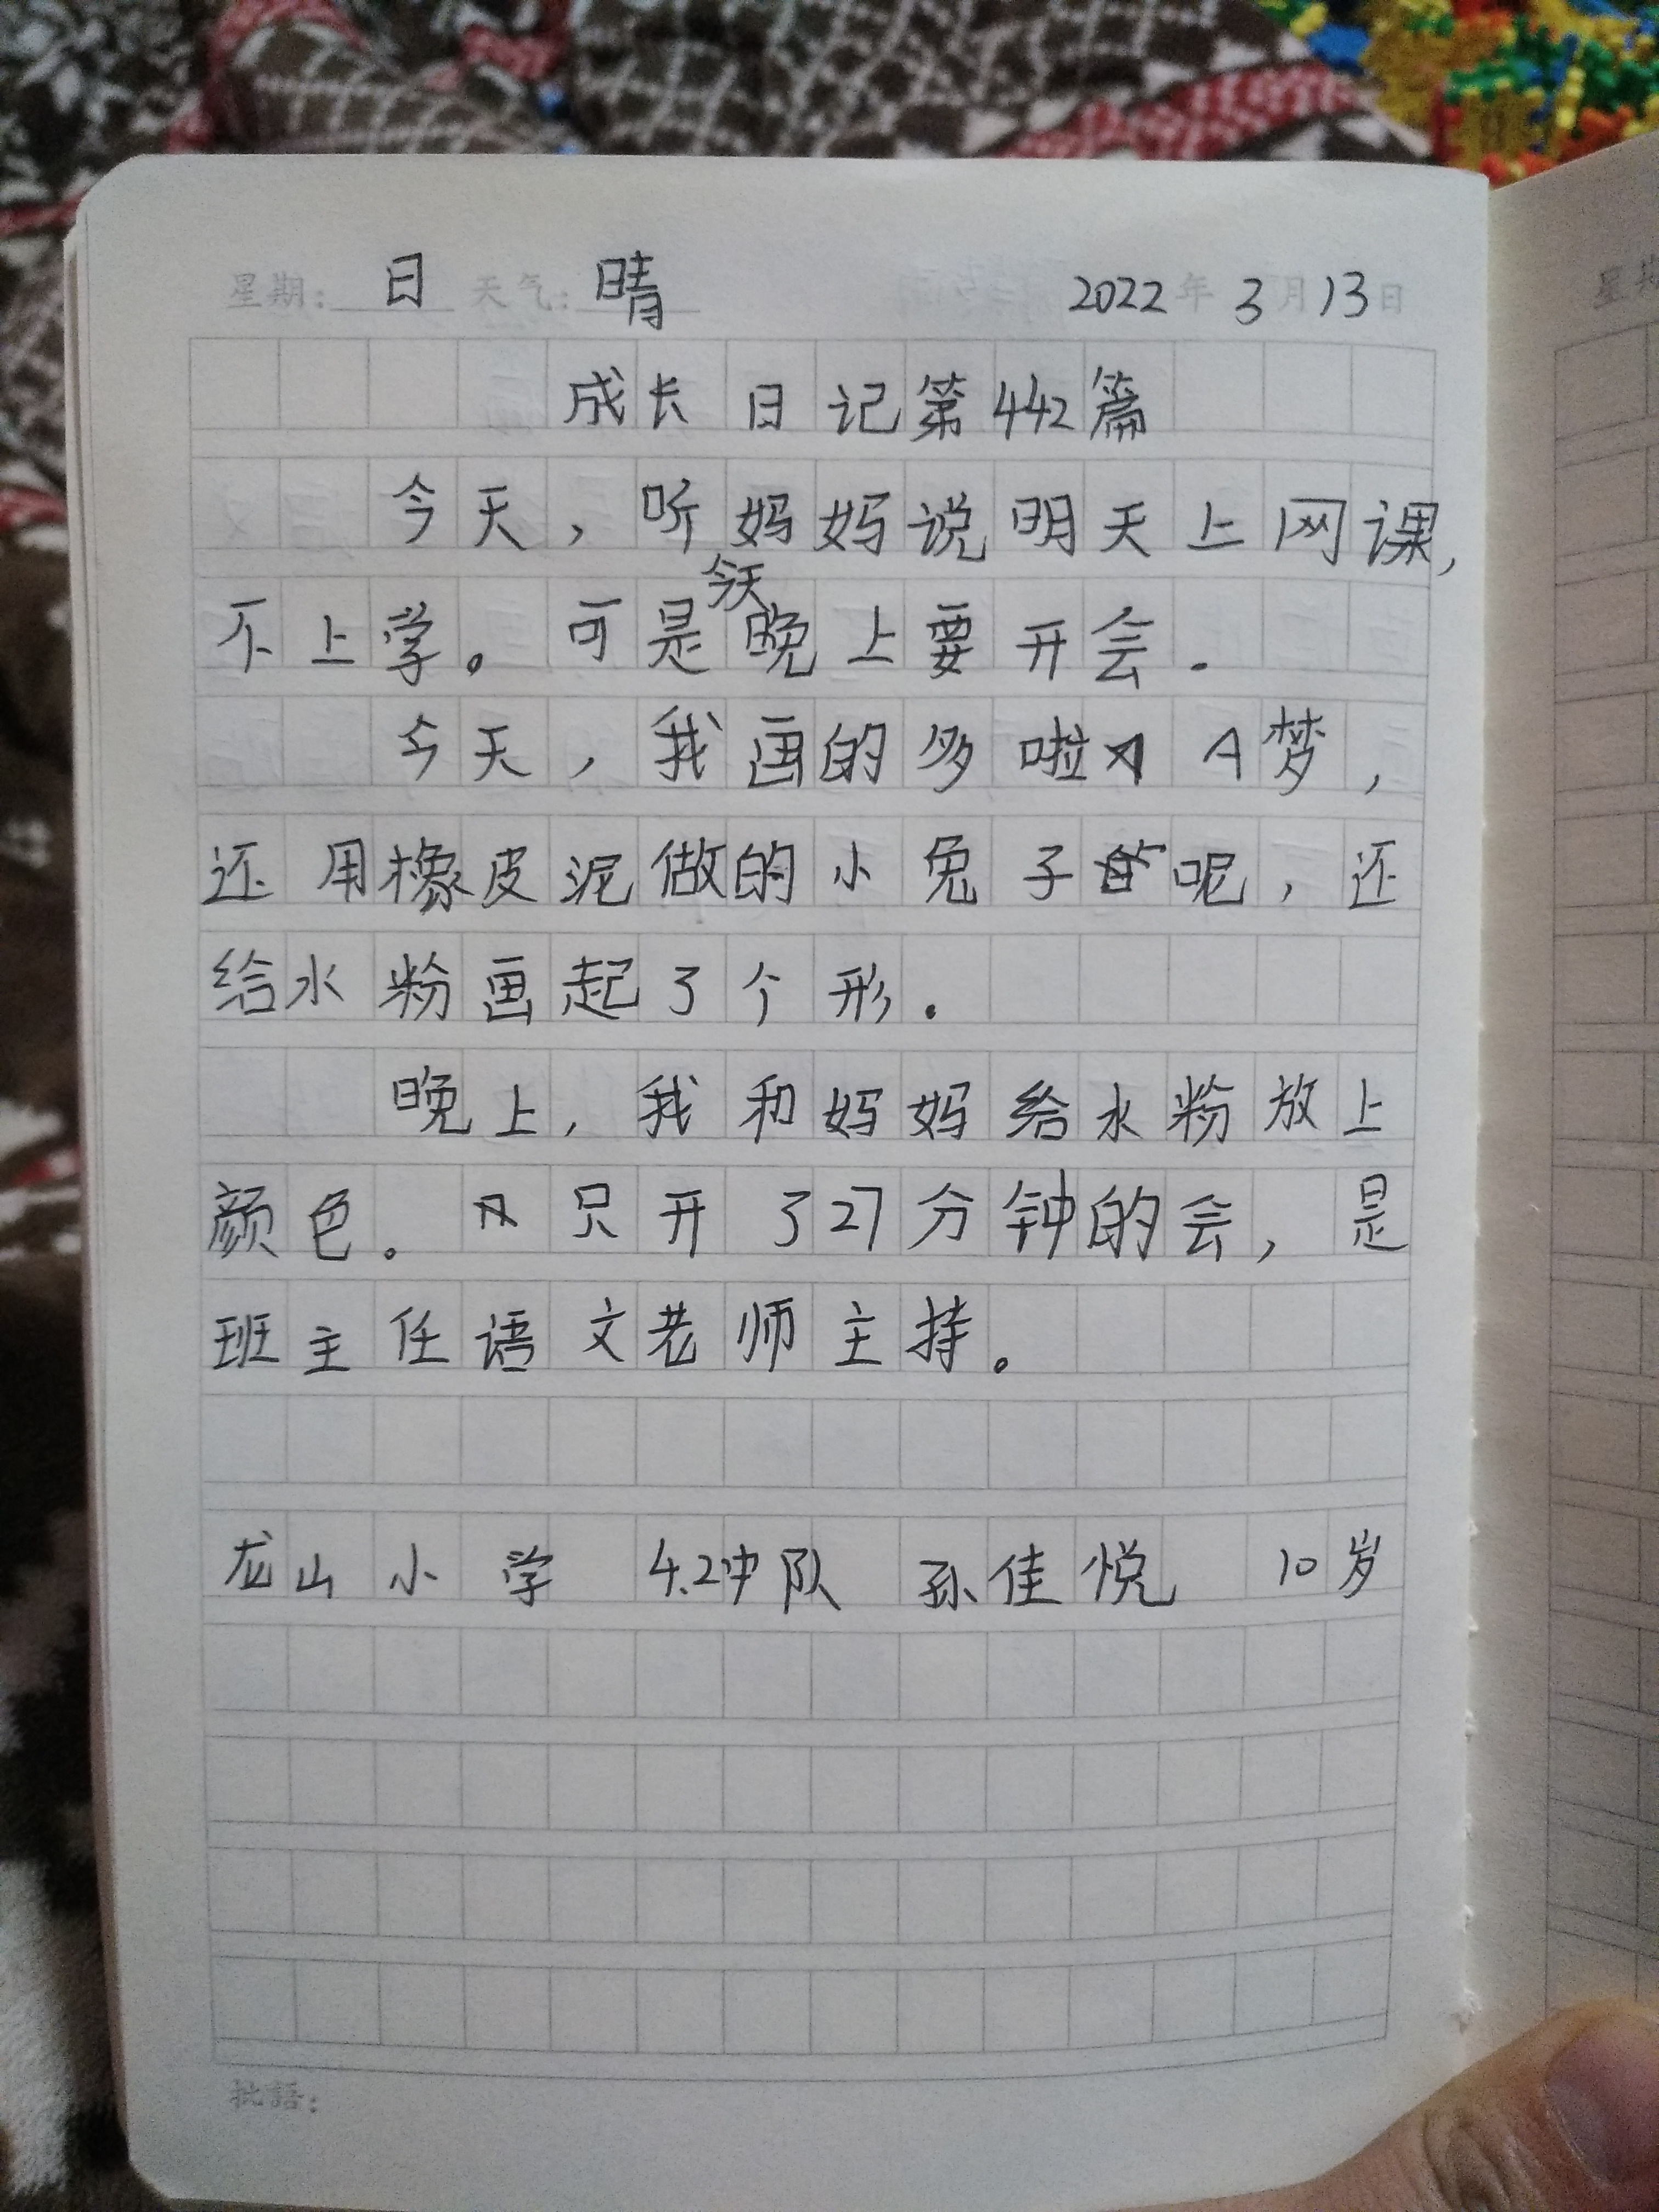 星期: 日 天气: 晴 2022年 3月13日 星期
成长日记第442篇
今天，听妈妈说明天上网课，
不上学。可是今天晚上要开会.
今天，我画的多啦A梦，
还用橡皮泥做的小兔子呢，还
给水粉画起了个形.
晚上，我和妈妈给水粉放上
颜色。只开了27分钟的会，是
班主任语文老师主持。
龙山小学 4.2冲队 孙佳悦 10岁
批語: